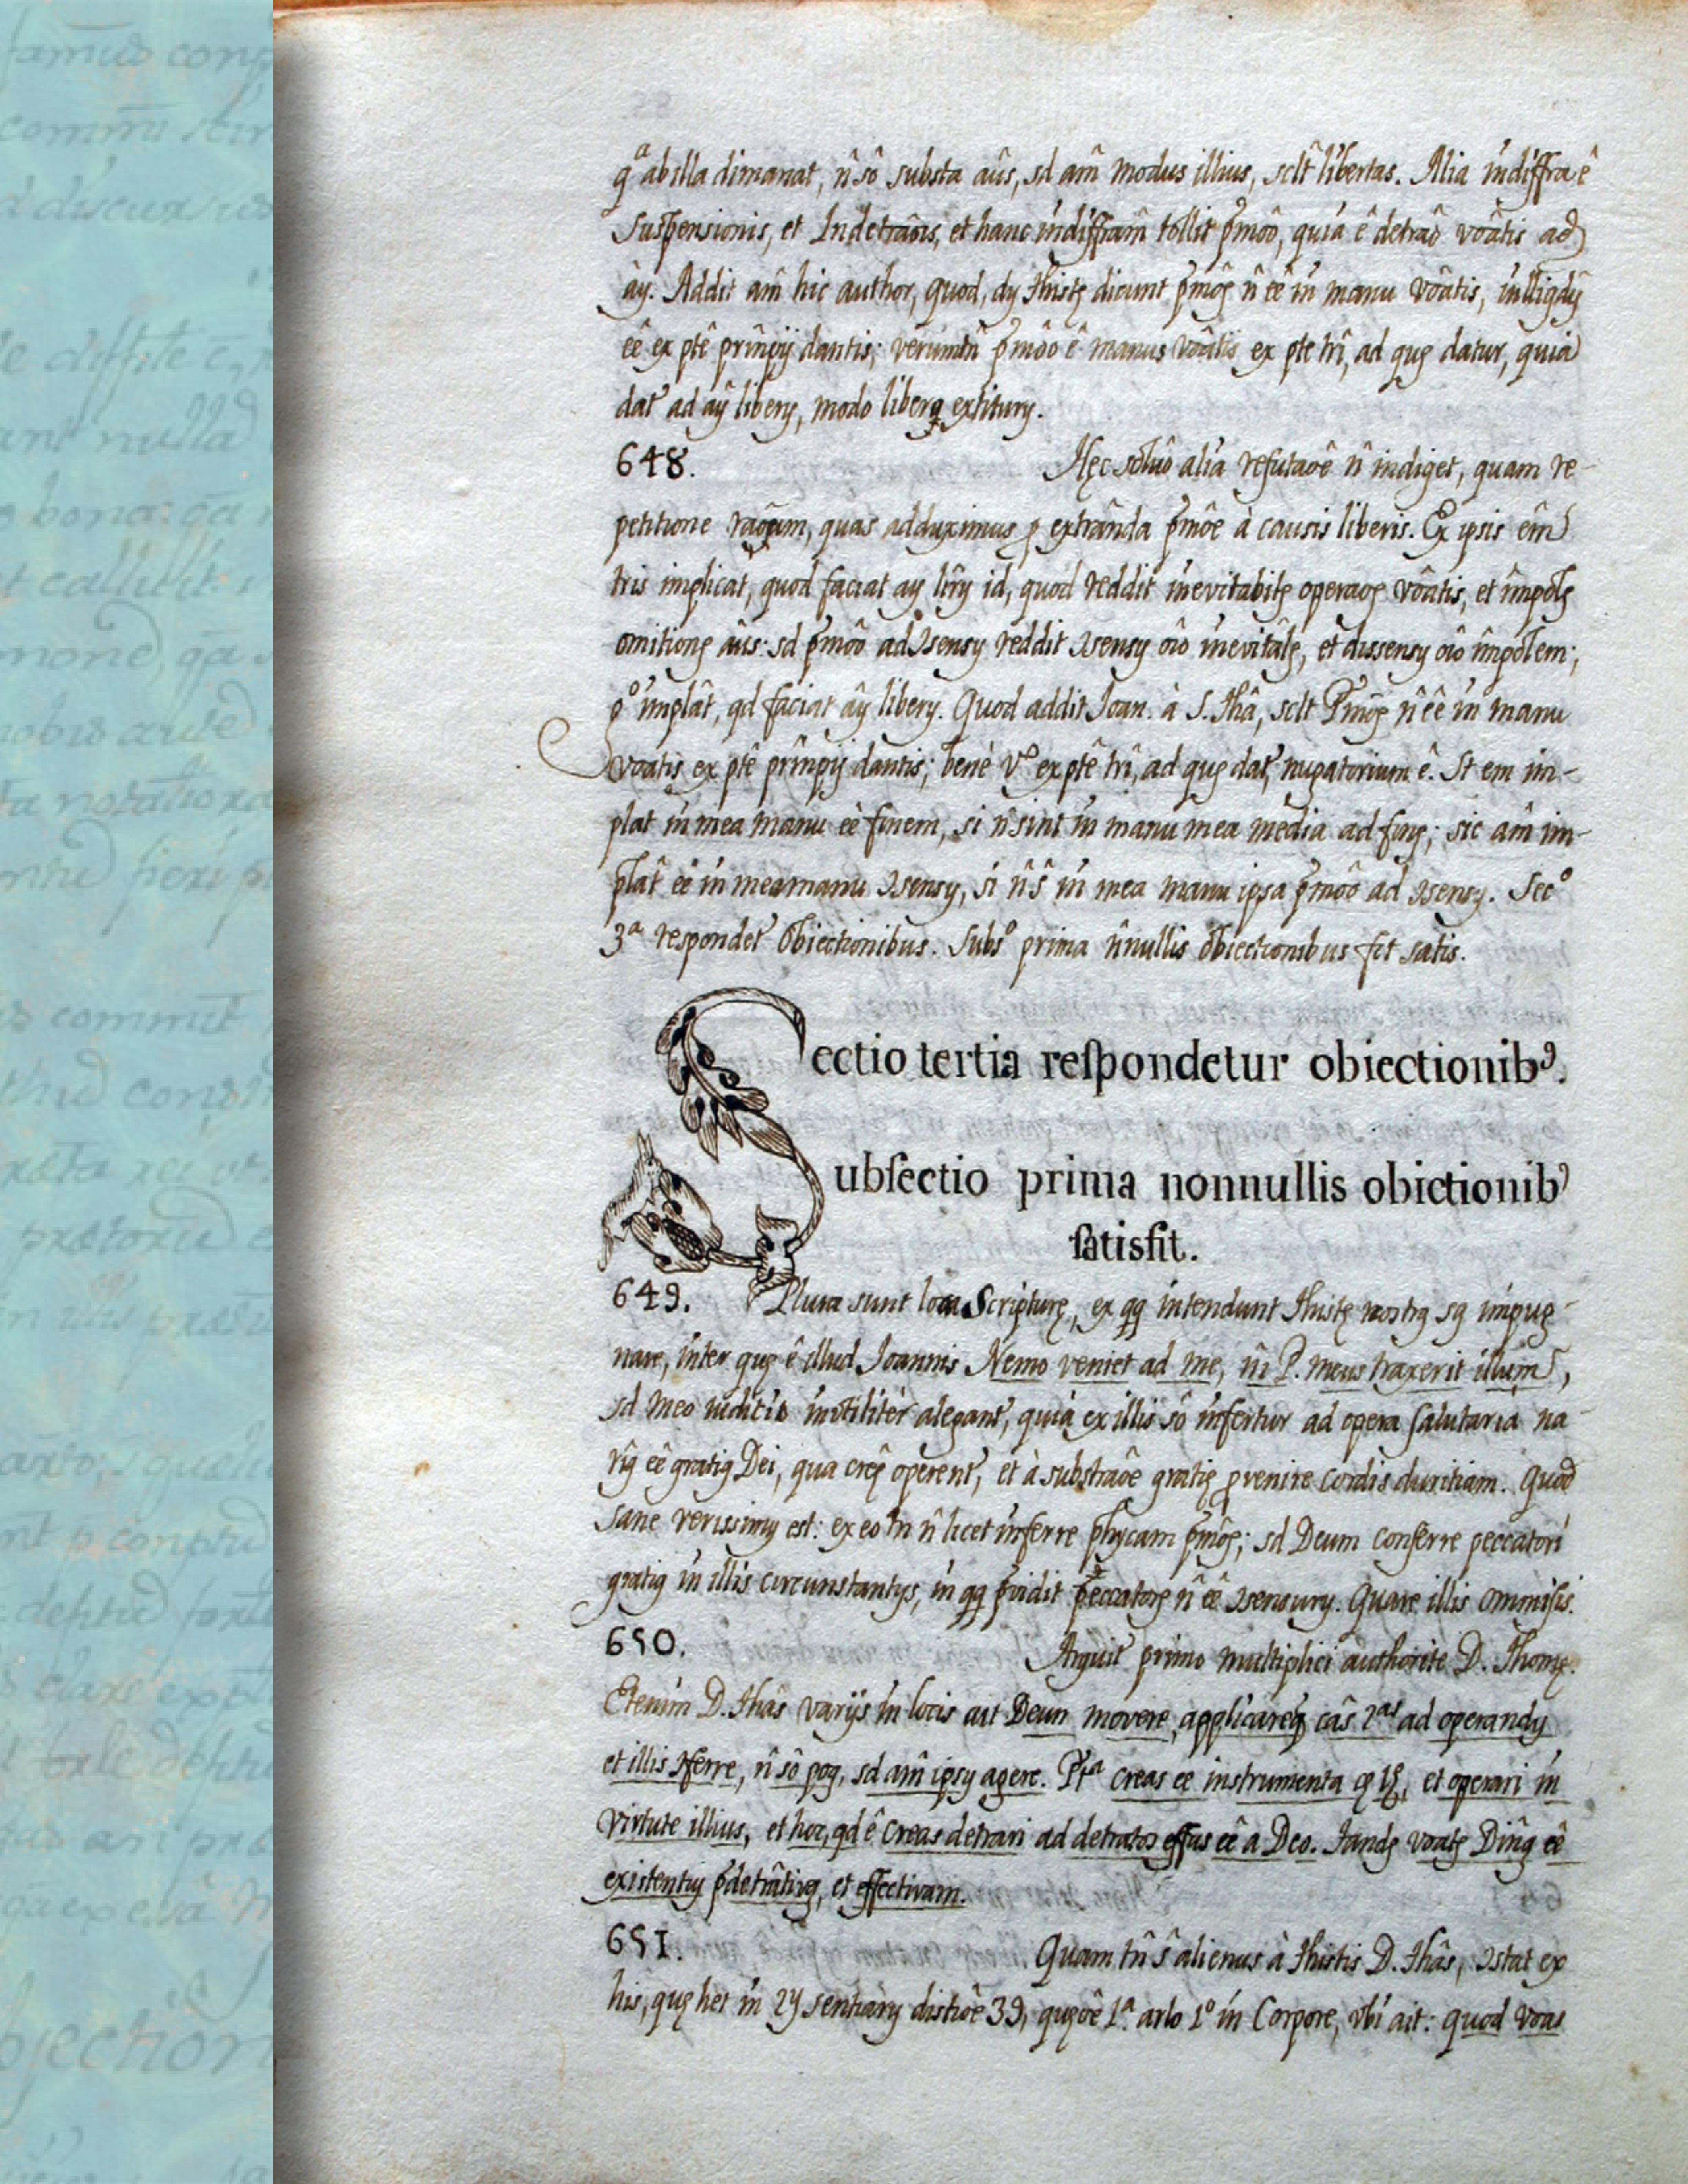 qª ab illa dimanat, n̂ sô substa aûs, sd am̂ modus illius, sclt̂ libertas. Alia indiffra ê
suspensionis, et Indetrâonis, et hanc indiffram̂ tollit p̂môo, quia ê detraô voâtis ad
aŷ. Addit am̂ hic author, quod, dy Thistę dicunt p̂moę n̂ eê in manu voâtis, inlligdŷ
eê ex ptê prînpij dantis; verumtn̂ p̂môo ê manus voâtis ex pte trî, ad quę datur, quia
dat' ad aŷ libery, modo liberą extitury.
648. Hęc solûo alia refutaoê n̂ indiget, quam re-
petitione raoûm, quas adduximus p extrânda p̂môe à causis liberis. Ex ipsis em̂
tris implicat, quod faciat ay lîry id, quod reddit inevitabilę operaoę voâtis, et împolę
omitionę aûs: sd p̂môo ad Ɔsensy reddit Ɔsensy oîo inevitâlę, et dissensy oîo împolem;
gº implât, qd faciat aŷ libery. Quod addit Joan. à S. Thâ, sclt P̂moę n̂ eê in manu
voatis ex ptê prînpij dantis; benè vº ex ptê trî, ad quę dat', nugatorium ê. St em im-
plat in mea manu eê finem, si n̂ sint in manu mea media ad finę; sic am̂ im-
plât eê in mea manu Ɔsensy, si n̂ ŝ in mea manu ipsa p̂môo ad Ɔsensy. Secº
3ª respondet' Obiectionibus. Subsº prima n̂nullis obiectionibus fit satis.
Sectio tertia reſpondetur obiectionibꝰ.
Subſectio prima nonnullis obictionibꝰ
ſatisfit.
649. Plura sunt loca Scripturę, ex qq intendunt Thistę nostrą są impug-
nare, inter quę ê illud Joannis Nemo veniet ad me, nî P. meus traxerit illum,
sd meo iuditio inutilitèr alegant', quia ex illis sô infertur ad opera salutaria na-
rîą eê gratią Dei, qua creę operent', et à substraôe gratię pvenire cordis duritiam. Quod
sane verissimy est: ex eo tn̂ n̂ licet inferre phycam p̂moę; sd Deum conferre peccatori
gratią in illis circunstantijs, in qq p̂vidit peccatorę n̂ eê Ɔsensury. Quare illis ommisis.
650. Arguit' primo multiplici authorite D. Thomę.
Etenim D. Thâs varijs in locis ait Deum movere, applicareq câs 2as ad operandy
et illis Ɔferre, n̂ sô poą, sd am̂ ipsy agere. Ptª creas ee instrumenta, et operari in
virtute illius, et hoc, qd ê creas detrari ad detratos effus eê a Deo. Tandę voatę Diną eê
existentiy p̂detrâtivą, et effectivam.
651. Quam tn̂ ŝ alienus à Thistis D. Thâs, Ɔstat ex
his, quę het in 2y sentiary distioê 39, quęoê 1ª. arlo 1º in Corpore, vbi ait: quod voas